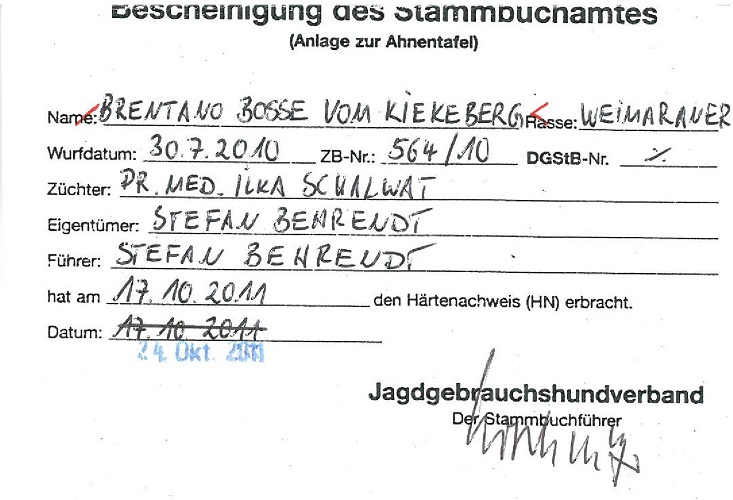 Bescheinigung des Stammbuchamtes
(Anlage zur Ahnentafel)
Name: BRENTANO BOSSE VOM KIEKEBERG Rasse: WEIMARANER
Wurfdatum: 30.7.2010 ZB-Nr.: 564/10 DGStB-Nr. %
Züchter: DR. MED. ILKA SCHALWAT
Eigentümer: STEFAN BEHRENDT
Führer: STEFAN BEHRENDT
hat am 17.10.2011 den Härtenachweis (HN) erbracht.
Datum: 17.10.2011
24. Okt. 2011
Jagdgebrauchshundverband
Der Stammbuchführer